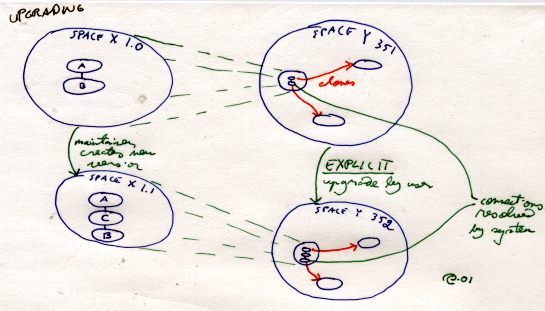 UPGRADING
SPACE X 1.0
A
B
SPACE Y 351
clones
maintainer
creates new
version
EXPLICIT
upgrade by user
SPACE X 1.1
A
C
B
SPACE Y 352
connections
resolved
by system